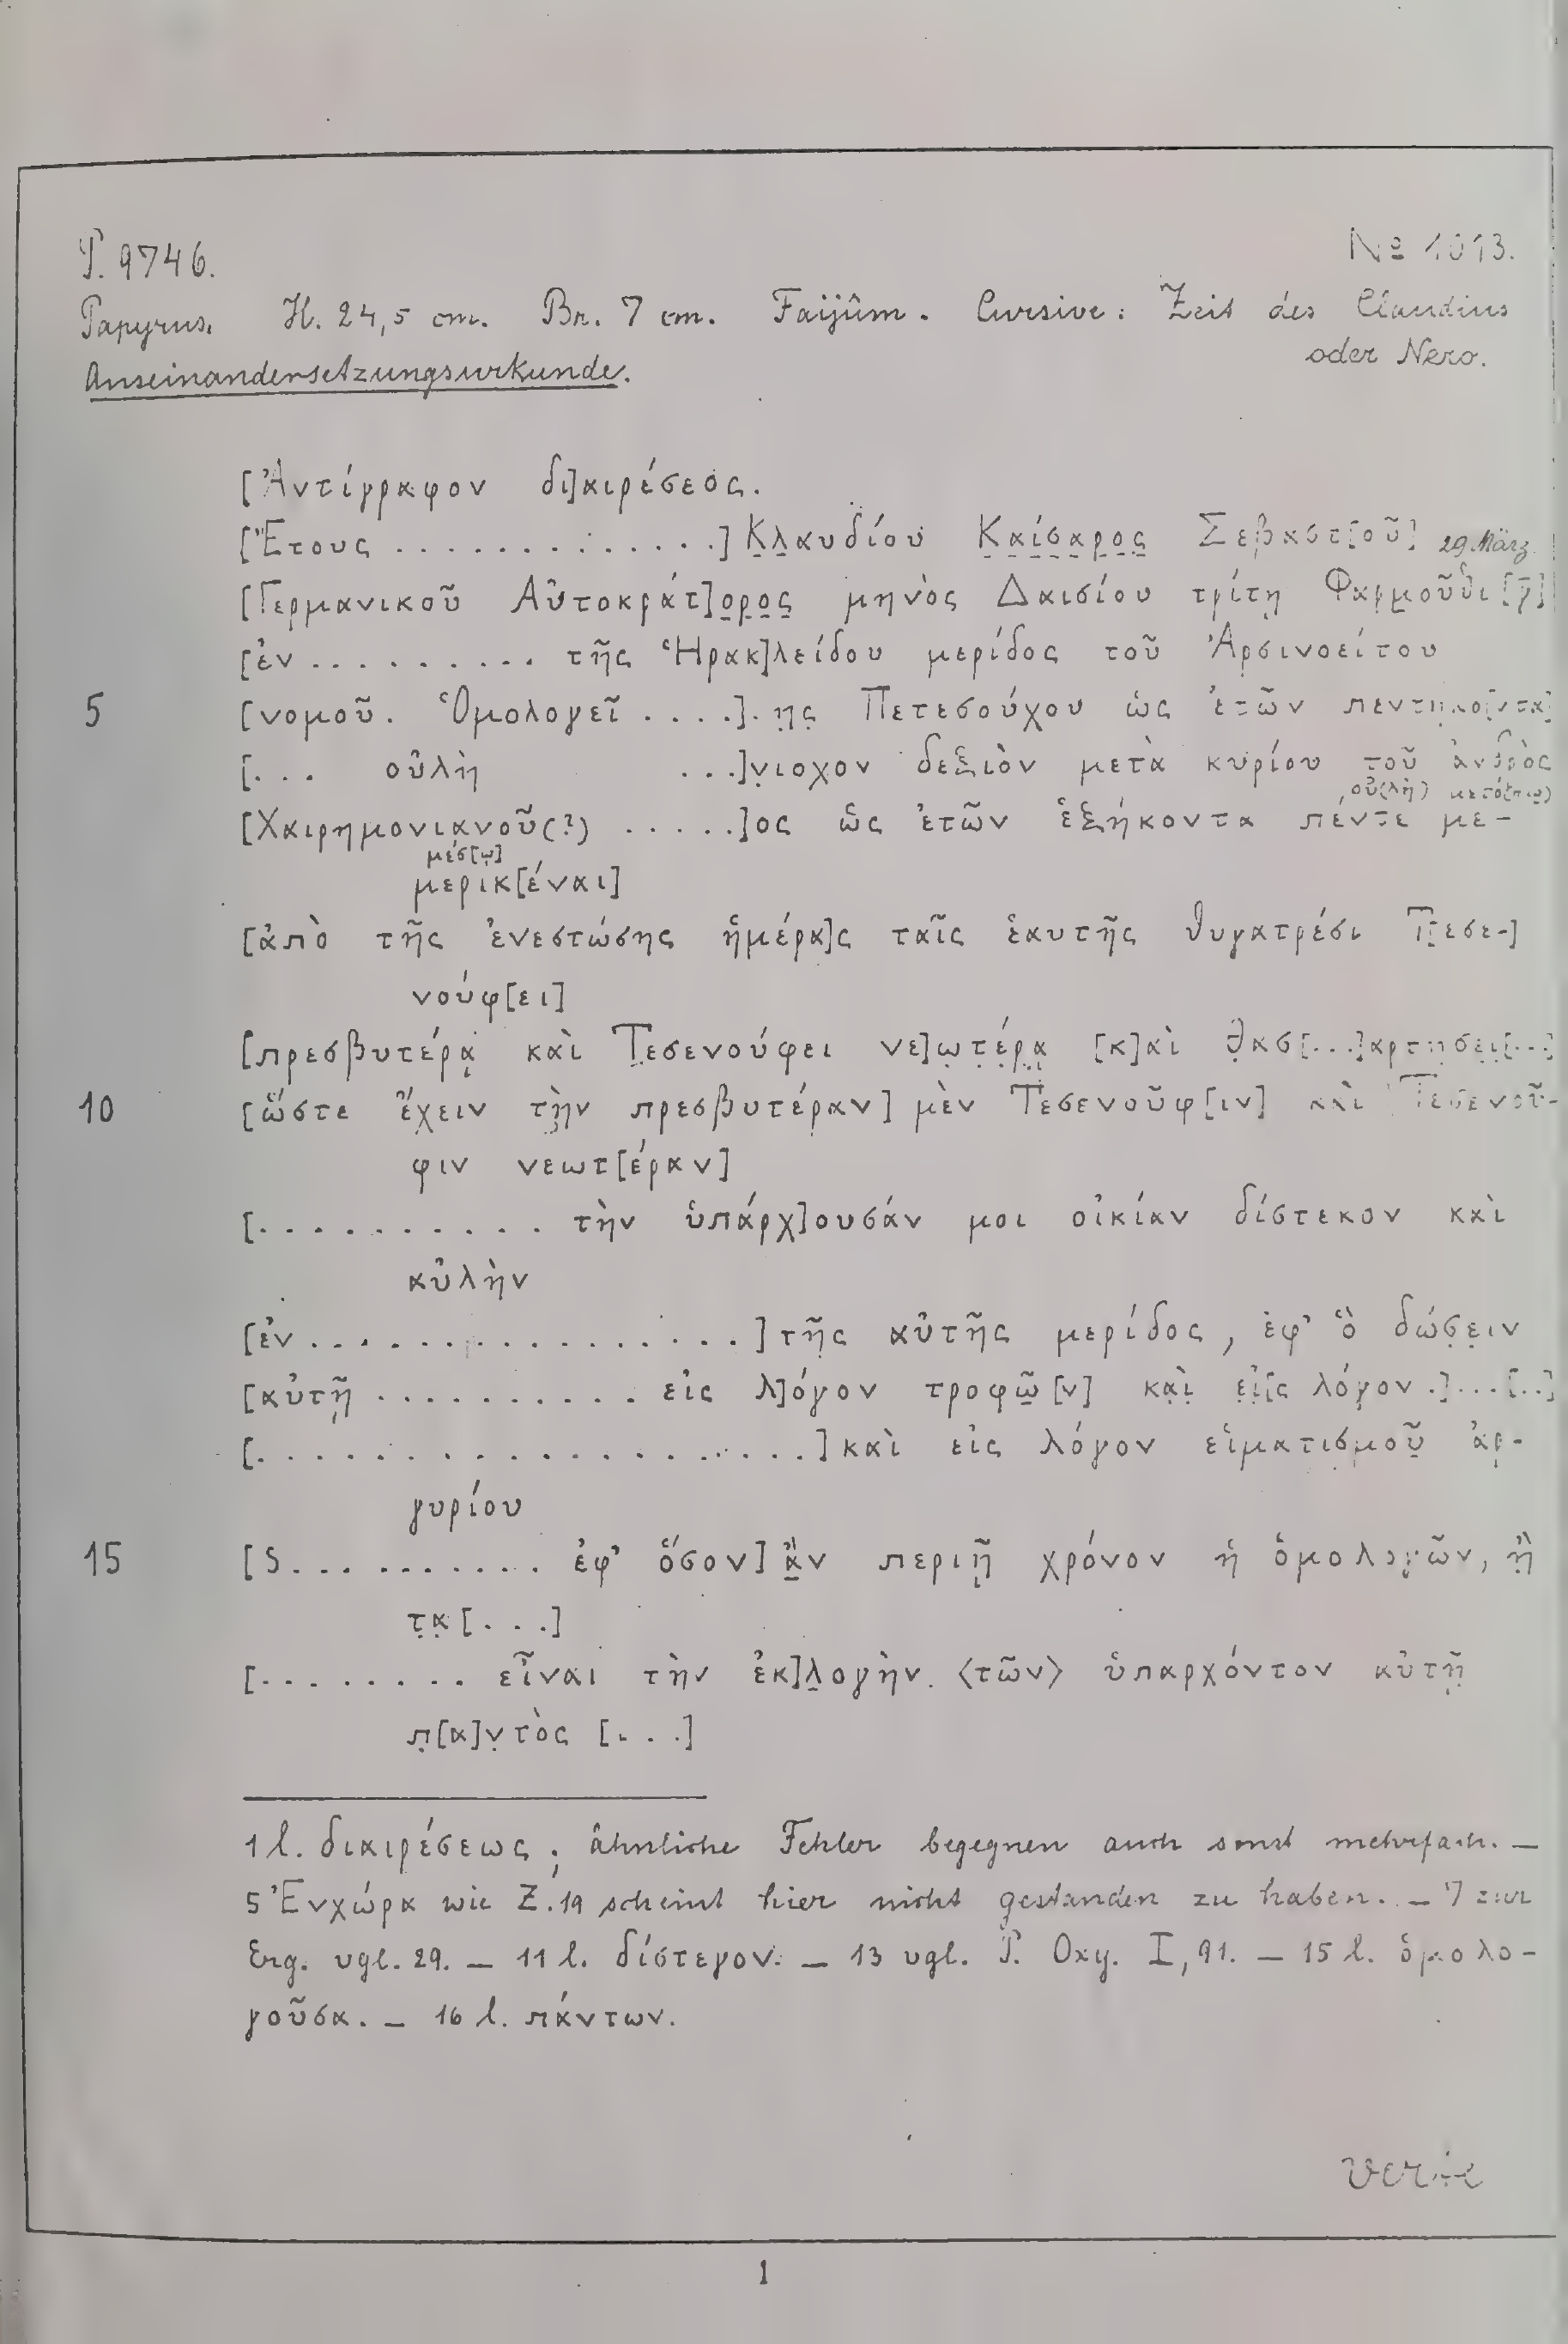 P. 9746.
No 1013.
Papyrus. H. 24,5 cm. Br. 7 cm. Faijûm. Cursive: Zeit des Claudius
oder Nero.
Auseinandersetzungsurkunde.
[Ἀντίγραφον δι]αιρέσεος.
[Ἔτους . . . . . . . . . . . . .] Κ̣λ̣αυδίου Κ̣α̣ί̣σ̣α̣ρ̣ο̣ς̣ Σεβαστ[οῦ] 29. März
[Γερμανικοῦ Αὐτοκράτ]ο̣ρ̣ο̣ς̣ μηνὸς Δαισίου τρίτῃ Φαρμοῦθι [γ̄]
[ἐν . . . . . . . . . . τῆς Ἡρακ]λείδου μερίδος τοῦ Ἀρσινοείτου
5 [νομοῦ. Ὁμολογεῖ . . . .]. η̣ς̣ Πετεσούχου ὡς ἐτῶν πεντηκο[ντα]
[. . . οὐλὴ . . .]ν̣ιοχον δεξιὸν μετὰ κυρίου τοῦ ἀνδρὸς
, οὐ(λὴ) μετό(πῳ)
[Χαιρημονιανοῦ(?) . . . . . .]ος ὡς ἐτῶν ἑξήκοντα πέντε με-
μέσ[ῳ]
μερικ[έναι]
[ἀπὸ τῆς ἐνεστώσης ἡμέρα]ς ταῖς ἑαυτῆς θυγατρέσι Τ[εσε-]
νούφ[ει]
[πρεσβυτέρᾳ καὶ Τεσενούφει νε]ω̣τ̣έ̣ρ̣ᾳ̣ [κ]αὶ θ̣ασ[...]αρτη̣σε̣ι̣[...]
10 [ὥστε ἔχειν τὴν πρεσβυτέραν] μὲν Τεσενοῦφ[ιν] καὶ Τεσενοῦ-
φιν νεωτ[έραν]
[. . . . . . . . . . . τὴν ὑπάρχ]ουσάν μοι οἰκίαν δίστεκον καὶ
αὐλὴν
[ἐν . . . . . . . . . . . . . . . . .] τῆς αὐτῆς μερίδος, ἐφ' ὃ δώσ̣ε̣ιν
[αὐτῇ . . . . . . . . . . εἰς λ]όγον τροφῶ̣[ν] κα̣ὶ̣ ε̣ἰ̣[ς λόγον .]...[..]
[. . . . . . . . . . . . . . . . . . . . .] καὶ εἰς λόγον εἱματισμοῦ̣ ἀρ-
γυρίου
15 [S. . . . . . . . . . . ἐφ' ὅσον] ἂ̣ν περιῇ χρόνον ἡ ὁμολογῶν, ἢ
τ̣α̣[. . .]
[. . . . . . . . . εἶναι τὴν ἐκ]λ̣ογὴν. ⟨τῶν⟩ ὑπαρχόντον αὐτῇ
π̣[α]ν̣τὸς [. . .]
1 l. διαιρέσεως; ähnliche Fehler begegnen auch sonst mehrfach. —
5 Ἐνχώρα wie Z. 19 scheint hier nicht gestanden zu haben. — 7 zur
Erg. vgl. 29. — 11 l. δίστεγον. — 13 vgl. P. Oxy. I, 91. — 15 l. ὁμολο-
γοῦσα. — 16 l. πάντων.
1